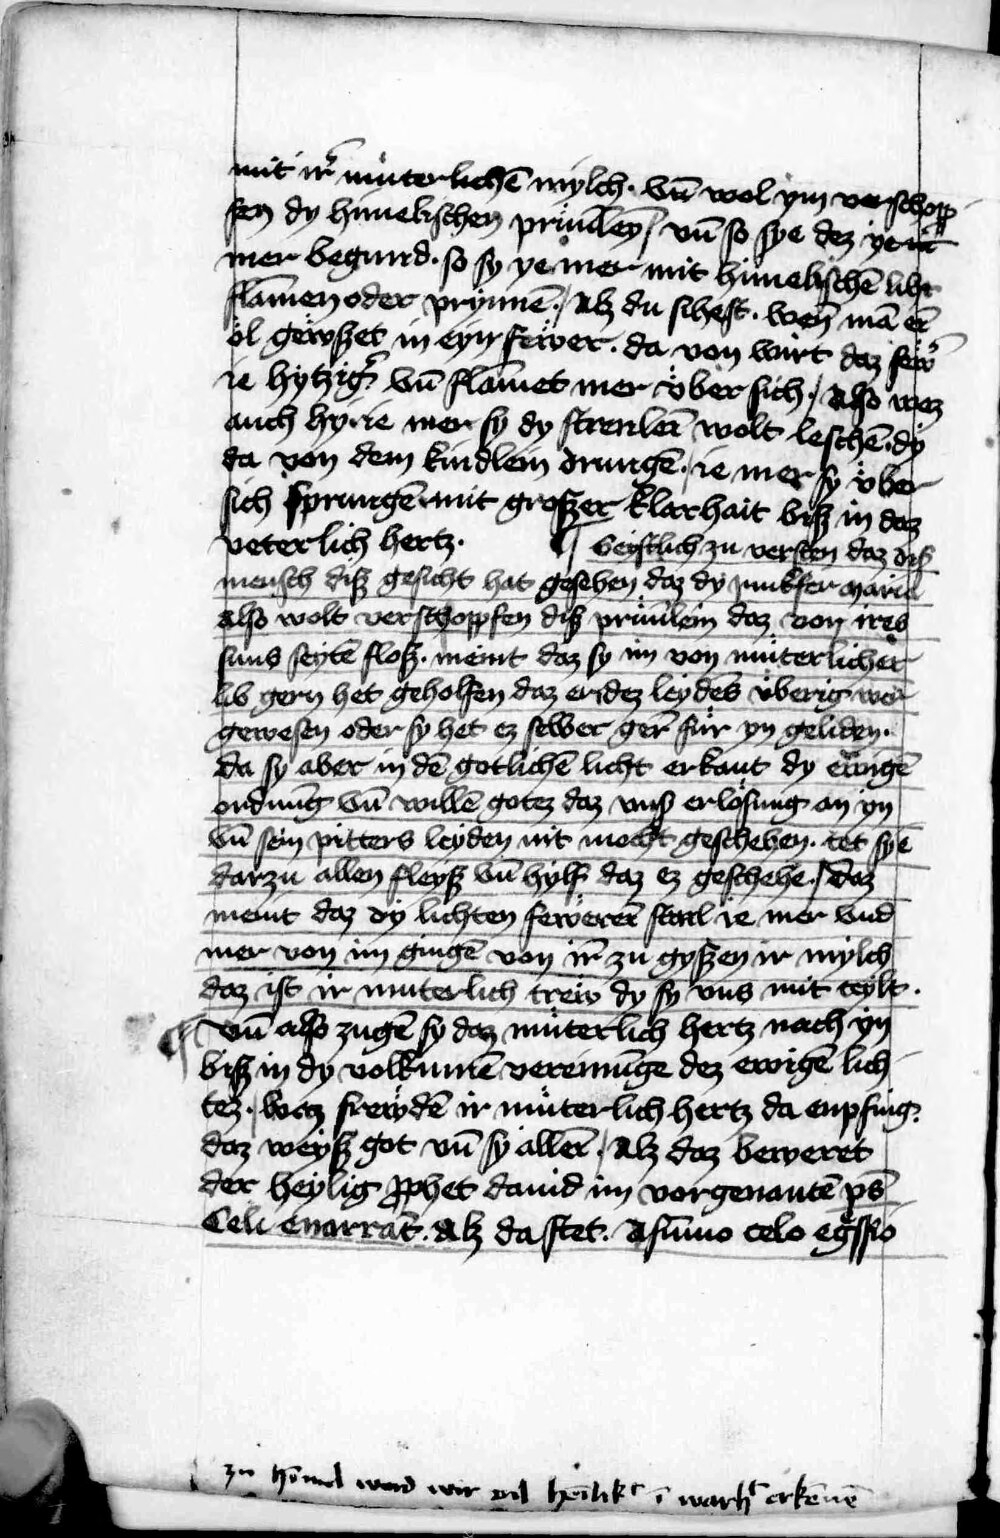 mit ir̄ müterlichē mylch. vn̄ wol ym verschopp
fen dy himelischen prünlein / vn̄ so sye dez ye m̄
mer begund. so sy ye mer mit himelischē libt
flāmen oder prynnē. / Alz du sihest. wen̄ mā er̄
öl gewszet in eyn fewer. da von wirt daz fewr̄
ie hytzigr̄ vn̄ flāmet mer v̈ber sich. / Also waz
auch hy. ie mer sy dy strenlein wolt leschē. dy
da von dem kindlein drungē. / ie mer sy v̈ber
sich sprungē mit groszer klarhait bisz in daz
veterlich hertz. ¶ Geystlich zu versten daz disz
mensch disz gesicht hat gesehen daz dy junkfer maria
also wolt verschoppfen disz prünlein daz von ires
suns seytē flosz. meint daz sy im von müterlicher
lib gern het geholfen daz er dez leydēs v̈berig wer
gewesen oder sy het ez selber ger̄ für yn geliden.
da sy aber in dē gotlichē licht erkant dy ewigē
ordnūg vn̄ willē gotez daz vnsz erlösung an yn
vn̄ sein pitters leyden nit mocht geschehen. tet sye
darzu allen fleysz vn̄ hylf daz ez geschehe. / Daz
meint daz dy lichten feweren stral ie mer vnd
mer von im gingē von ir̄ zu gyszen ir mylch
daz ist ir muterlich trew dy sy vns mit teylt.
¶ vn̄ also zugē sy daz müterlich hertz nach yn
bisz in dy volkumē vereinūge dez ewigē lich
tez. / waz frewdē ir müterlich hertz da enpfing.
daz weysz got vn̄ sy allein. / Alz daz beweret
der heylig ꝓphet dauid im vorgenantē ps̄
Celi enarrāt. Alz da stet. A sūmo celo egssio
zu hīmel werd wir vil heīlikᵗ ī warhᵗ erkēnē